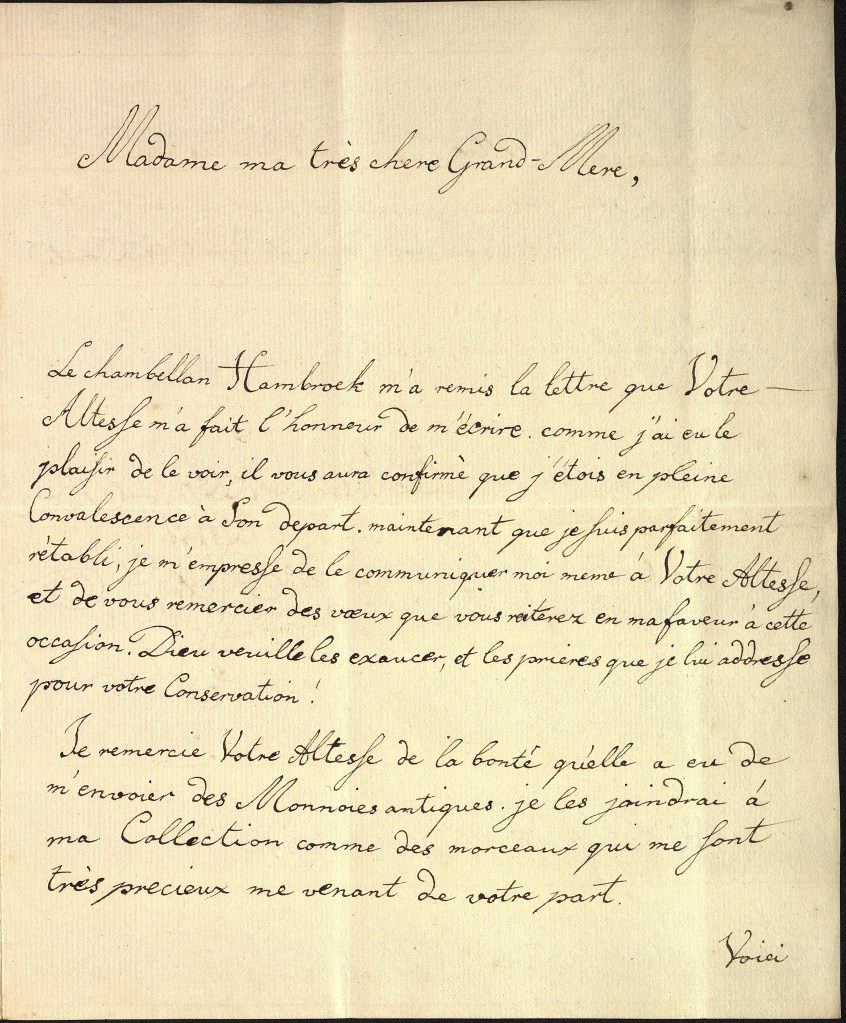 Madame ma très chere Grand-Mere,
Le chambellan Hambroek m'a remis la lettre que Votre —
Altesse m'a fait l'honneur de m'écrire. comme j'ai eu le
plaisir de le voir, il vous aura confirmè que j'étois en pleine
Convalescence à Son depart. maintenant que je suis parfaitement
rétabli, je m'empresse de le communiquer moi meme á Votre Altesse,
et de vous remercier des vœux que vous reïterez en ma faveur à cette
occasion. Dieu veuille les exaucer, et les prieres que je lui addresse
pour votre Conservation!
Je remercie Votre Altesse de la bonté qu'elle a eu de
m'envoier des Monnoies antiques. je les joindrai á
ma Collection comme des morceaux qui me sont
très precieux me venant de votre part.
Voici